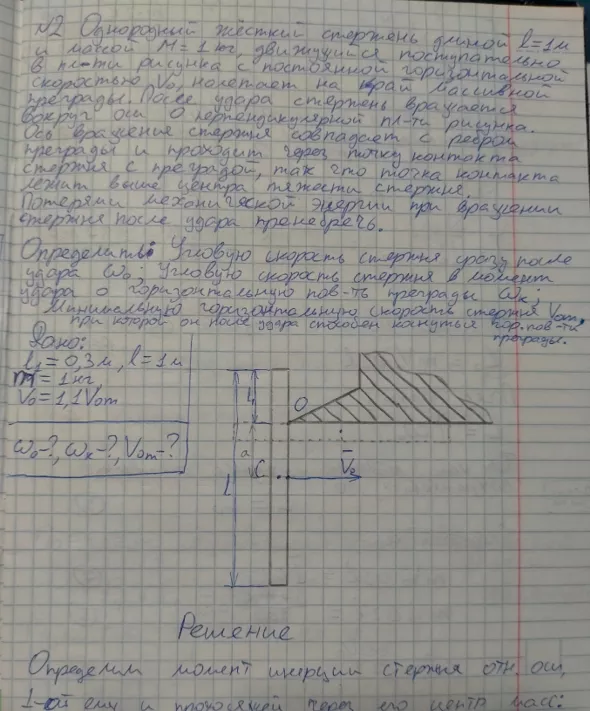 №2 Однородный жёсткий стержень длиной l=1м
и массой M=1кг, движущийся поступательно
в пл-ти рисунка с постоянной горизонтальной
скоростью V₀, налетает на край массивной
преграды. После удара стержень вращается
вокруг оси О перпендикулярной пл-ти рисунка.
Ось вращения стержня совпадает с ребром
преграды и проходит через точку контакта
стержня с преградой, так что точка контакта
лежит выше центра тяжести стержня.
Потерями механической энергии при вращении
стержня после удара пренебречь.
Определить: Угловую скорость стержня сразу после
удара ω₀; Угловую скорость стержня в момент
удара о горизонтальную пов-ть преграды ωк;
Минимальную горизонтальную скорость стержня V₀m,
при которой он после удара способен коснуться гор. пов-ти
преграды.
Дано:
l₁=0,3м, l=1м
m=1кг,
V₀=1,1V₀m
ω₀-?, ωк-?, V₀m-?
l₁
О
a
C
V₀
l
Решение
Определим момент инерции стержня отн. оси,
⊥-ой ему и проходящей через его центр масс: